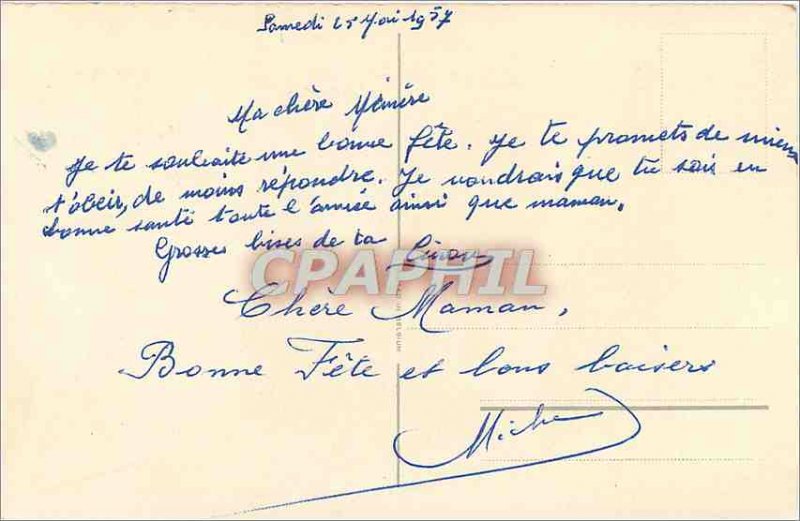 Samedi 25 Mai 1957
Ma chère Mémère
Je te souhaite une bonne fête. Je te promets de mieux
t'obéir, de moins répondre. Je voudrais que tu sois en
bonne santé toute l'année ainsi que maman.
Grosses bises de ta
CPAPHIL
Chère Maman,
Bonne Fête et bons baisers
Miche